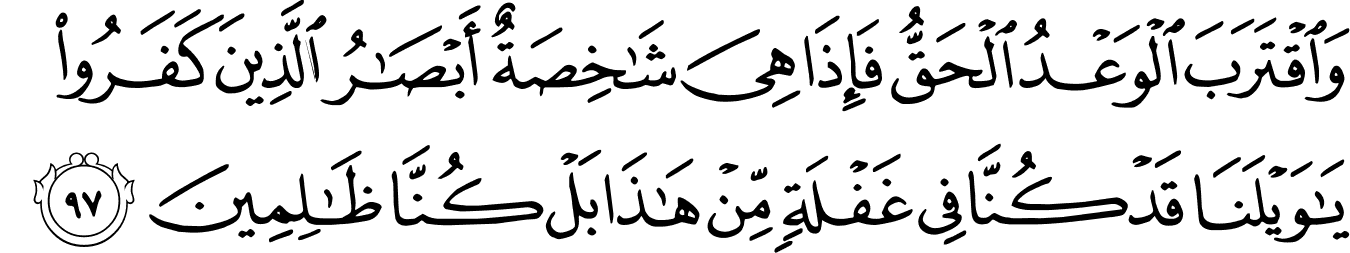 وَٱقۡتَرَبَ ٱلۡوَعۡدُ ٱلۡحَقُّ فَإِذَا هِىَ شَٰخِصَةٌ أَبۡصَٰرُ ٱلَّذِينَ كَفَرُوا۟
يَٰوَيۡلَنَا قَدۡ كُنَّا فِى غَفۡلَةٍ مِّنۡ هَٰذَا بَلۡ كُنَّا ظَٰلِمِينَ ٩٧